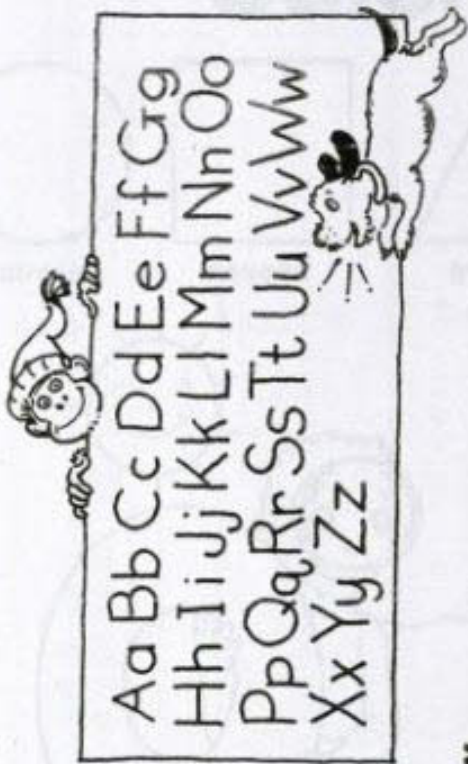 Aa Bb Cc Dd Ee Ff Gg
Hh Ii Jj Kk Ll Mm Nn Oo
Pp Qq Rr Ss Tt Uu Vv Ww
Xx Yy Zz